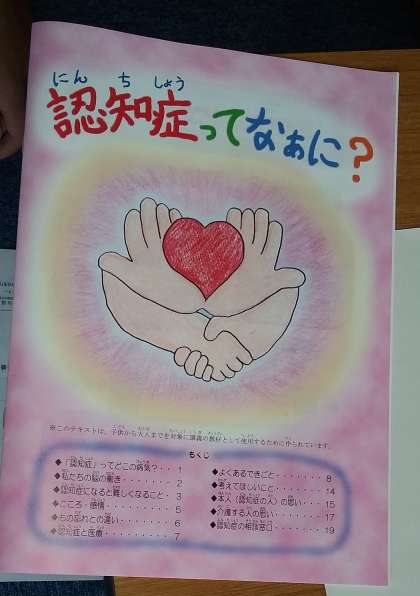 にんちしょう
認知症ってなぁに?
※このテキストは、子供から大人までを対象に講義の教材として使用するために作られています。
もくじ
◆「認知症」ってどこの病気?・・1
◆私たちの脳の働き・・・・・・2
◆認知症になると難しくなること・3
◆こころ・感情・・・・・・・・5
◆もの忘れとの違い・・・・・・6
◆認知症と医療・・・・・・・・7
◆よくあるできごと・・・・・・・8
◆考えてほしいこと・・・・・・14
◆本人(認知症の人)の思い・・・15
◆介護する人の思い・・・・・・17
◆認知症の相談窓口・・・・・・19